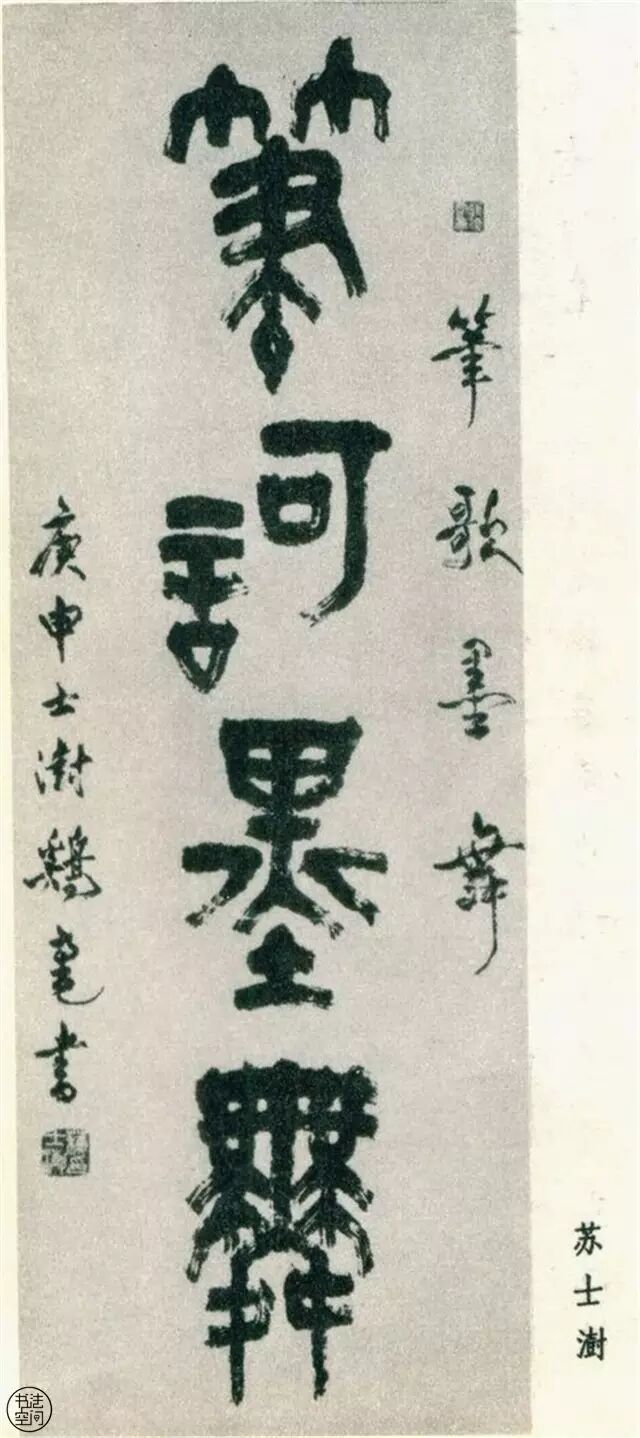 筆歌墨舞
筆訶墨舞
庚申士澍鷄毫書
苏士澍
书法空间